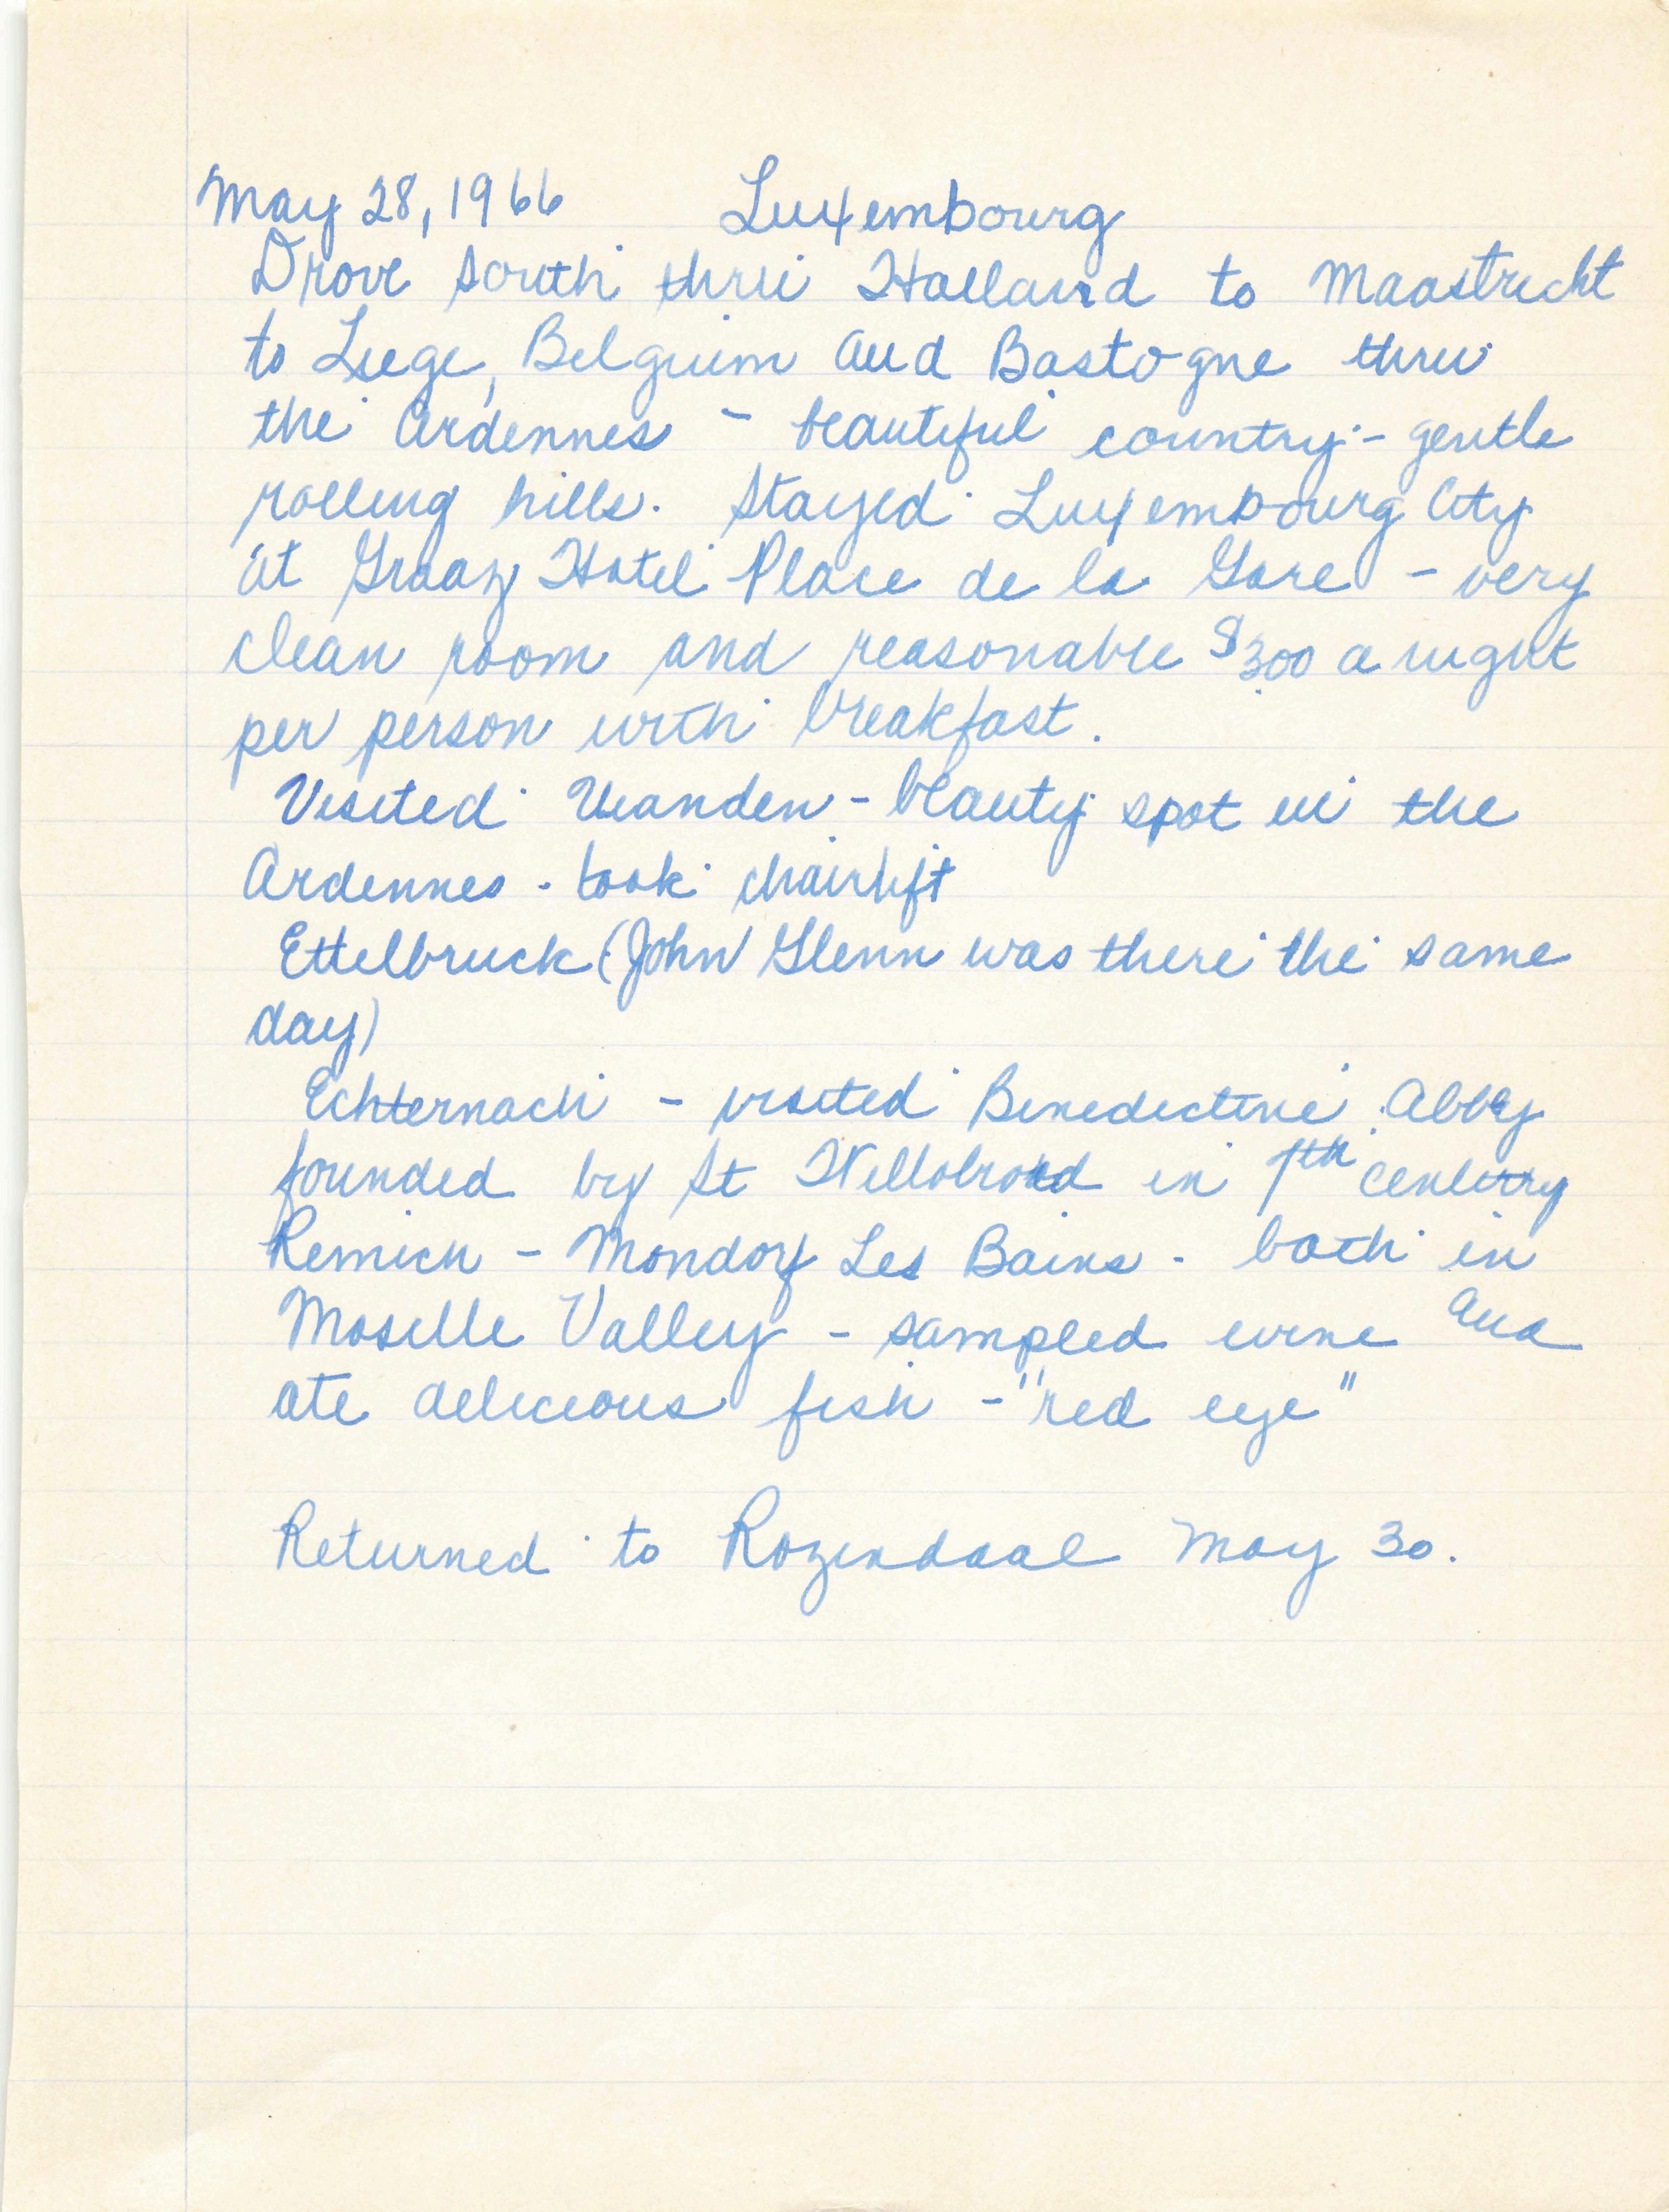 May 28, 1966 Luxembourg
Drove south thru Holland to Maastricht
to Liege, Belguim and Bastogne thru
the Ardennes - beautiful country - gentle
rolling hills. Stayed Luxembourg City
at Graaz Hotel Place de la Gare - very
clean room and reasonable $3.00 a night
per person with breakfast.
Visited Vianden - beauty spot in the
Ardennes - took chairlift
Ettelbruck (John Glenn was there the same
day)
Echternach - visited Benedictine Abby
founded by St Willobrord in 7th century
Remich - Mondorf Les Bains - both in
Moselle Valley - sampled wine and
ate delicious fish - "red eye"
Returned to Rozendaal May 30.